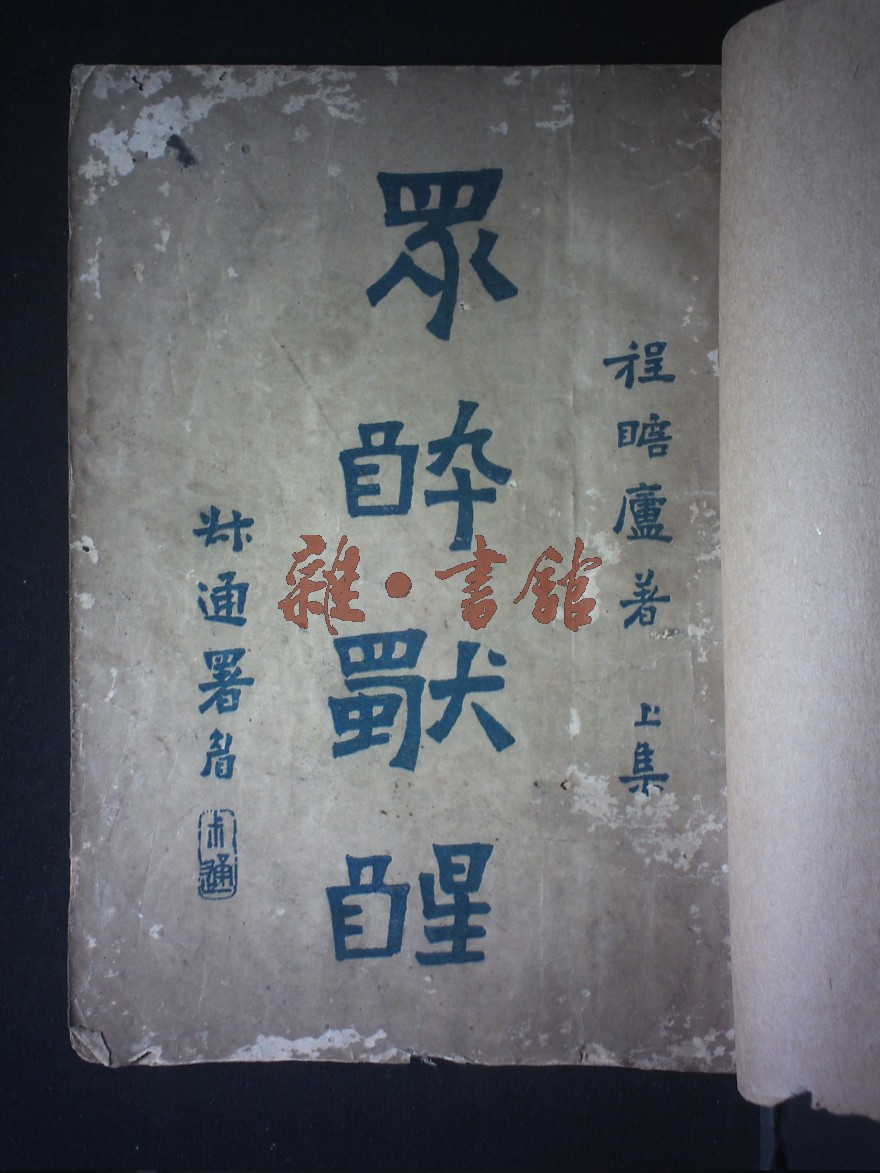 程瞻廬著 上集
眾醉獨醒
叔通署眉
叔通
雜·書館